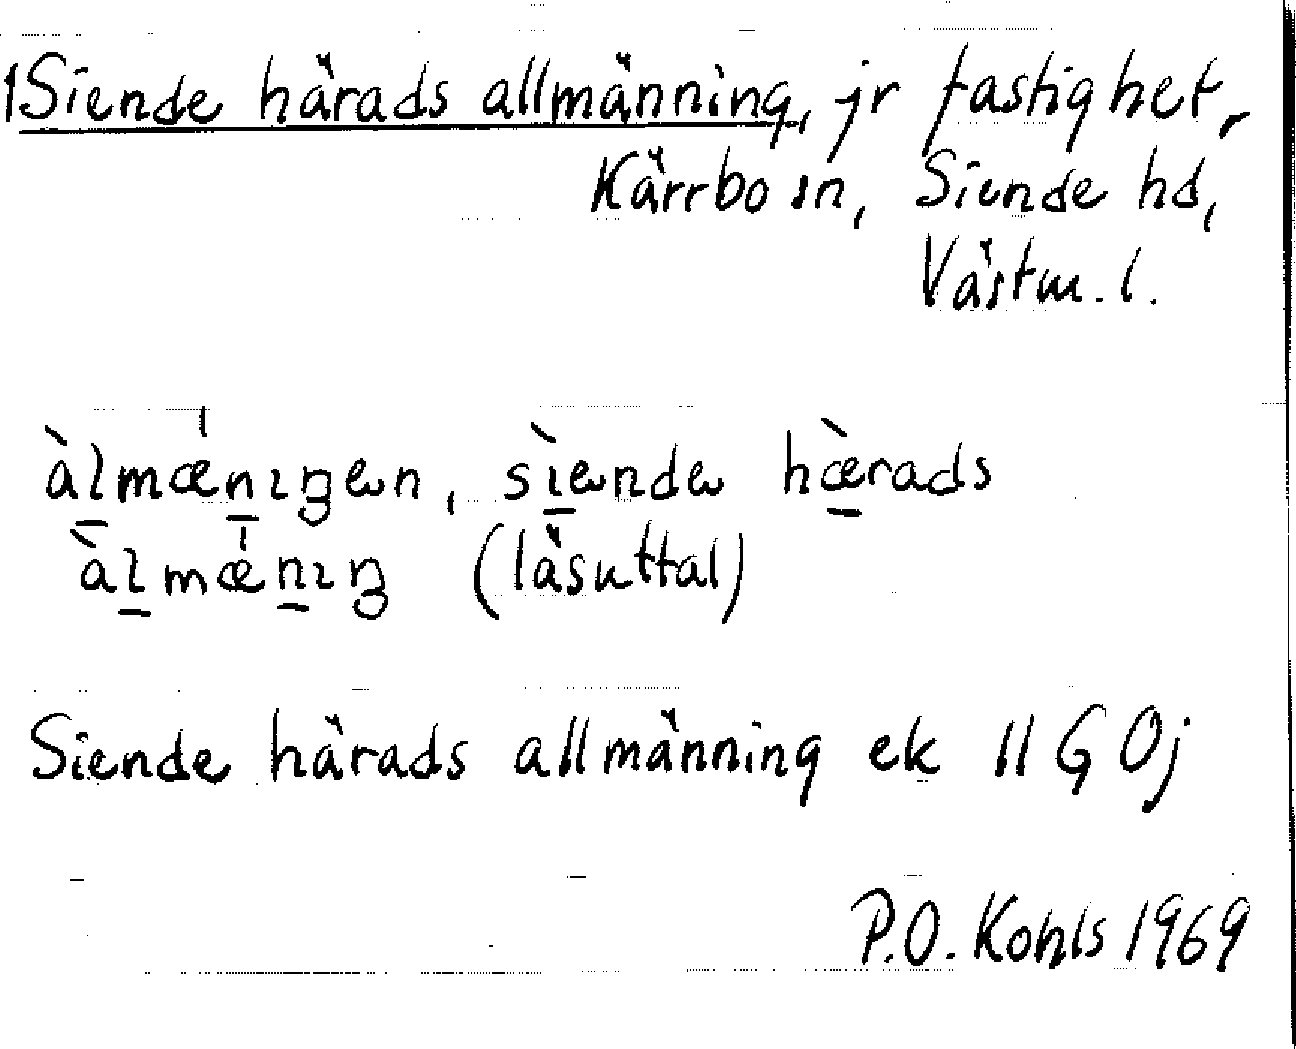 1Siende härads allmänning, jr fastighet,
Kärrbo sn, Siende hd,
Västm. l.
àlmænıŋən, sìəndə hæ̀rads
àlmænıŋ (läsuttal)
Siende härads allmänning ek 11 G 0j
P.O. Kohls 1969